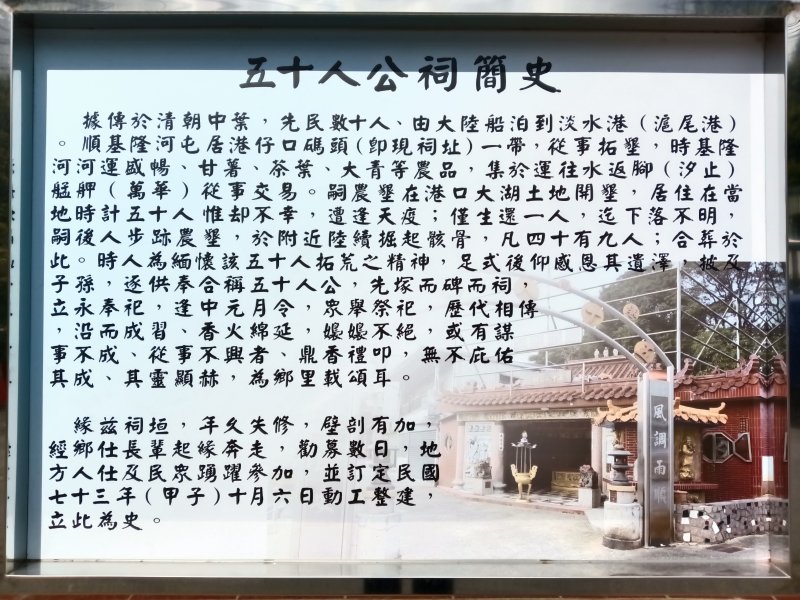 五十人公祠簡史
據傳於清朝中葉，先民數十人、由大陸船泊到淡水港（滬尾港）
。順基隆河屯居港仔口碼頭（即現祠址）一帶，從事拓墾，時基隆
河河運盛暢、甘薯、茶葉、大青等農品，集於運往水返腳（汐止）
艋舺（萬華）從事交易。嗣農墾在港口大湖土地開墾，居住在當
地時計五十人惟却不幸，遭逢天疫；僅生還一人，迄下落不明，
嗣後人步跡農墾，於附近陸續掘起骸骨，凡四十有九人；合葬於
此。時人為緬懷該五十人拓荒之精神，足式後仰感恩其遺澤，披及
子孫，逐供奉合稱五十人公，先塚而碑而祠，
立永奉祀，逢中元月令，眾舉祭祀，歷代相傳
，沿而成習、香火綿延，嬝嬝不絕，或有謀
事不成、從事不興者、鼎香禮叩，無不庇佑
其成、其靈顯赫，為鄉里載頌耳。
緣茲祠垣，年久失修，壁剖有加，
經鄉仕長輩起緣奔走，勸募數日，地
方人仕及民眾踴躍參加，並訂定民國
七十三年（甲子）十月六日動工整建，
立此為史。
風調雨順